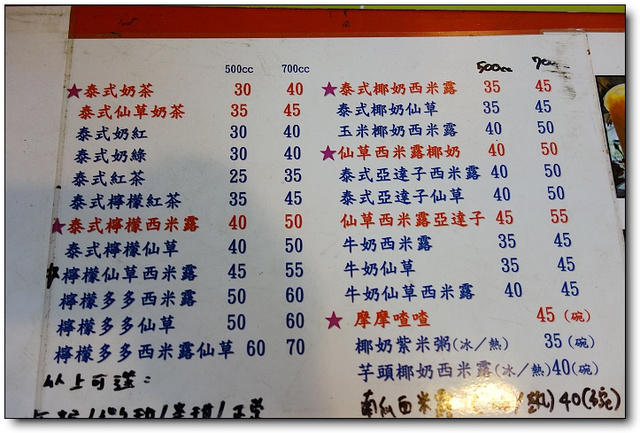 500cc 700cc
★泰式奶茶 30 40
泰式仙草奶茶 35 45
泰式奶紅 30 40
泰式奶綠 30 40
泰式紅茶 25 35
泰式檸檬紅茶 35 45
★泰式檸檬西米露 40 50
泰式檸檬仙草 40 50
檸檬仙草西米露 45 55
檸檬多多西米露 50 60
檸檬多多仙草 50 60
檸檬多多西米露仙草 60 70
以上可選：
500cc
★泰式椰奶西米露 35 45
泰式椰奶仙草 35 45
玉米椰奶西米露 40 50
★仙草西米露椰奶 40 50
泰式亞達子西米露 40 50
泰式亞達子仙草 40 50
仙草西米露亞達子 45 55
牛奶西米露 35 45
牛奶仙草 35 45
牛奶仙草西米露 40 45
★摩摩喳喳 45（碗）
椰奶紫米粥(冰／熱) 35（碗）
芋頭椰奶西米露(冰／熱)40(碗)
南瓜西米露 熱)40(碗)